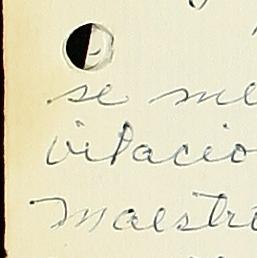 se me
vilacio
Maestr